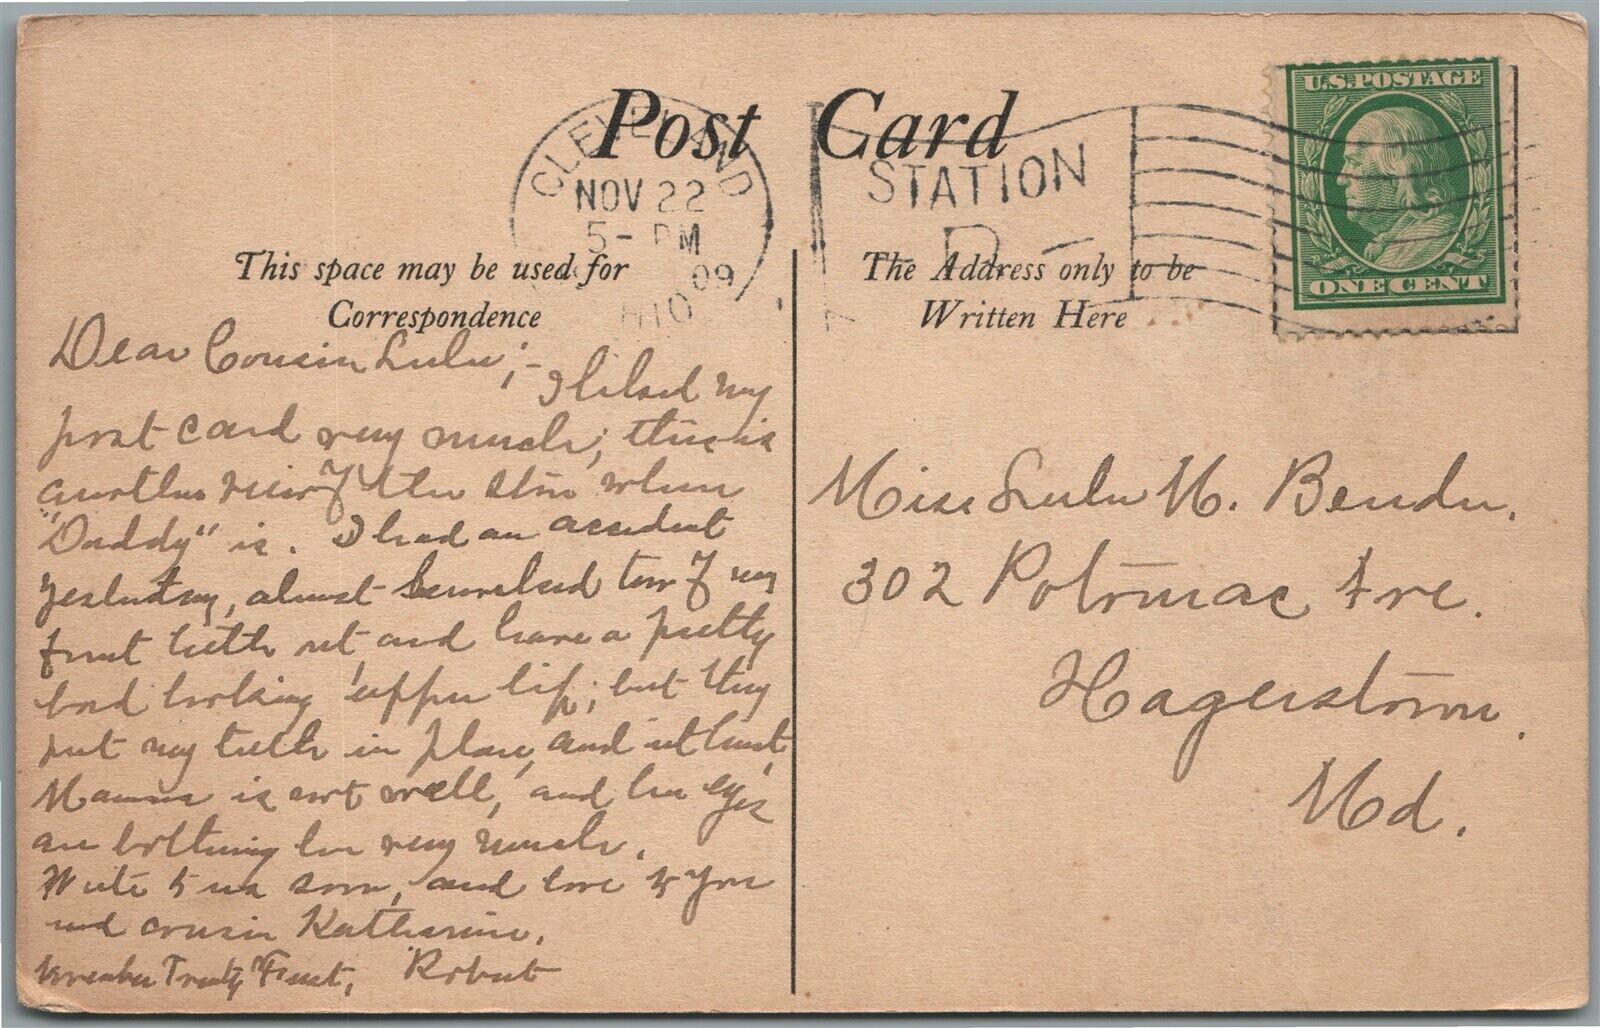 Post Card
CLEVELAND
NOV 22
5- PM
09
OHIO
STATION
D
U.S. POSTAGE
ONE CENT
This space may be used for
Correspondence
The Address only to be
Written Here
Dear Cousin Lulu;-
I liked my
post card very much; this is
another view of the store where
"Daddy" is. I had an accident
yesterday, almost knocked two of my
front teeth out and have a pretty
bad looking upper lip; but they
put my teeth in place, and it hurt,
Mamma is not well, and her eyes
are bothering her very much.
Write to us soon, and love to you
and cousin Katharine.
November Twenty First, Robert
Miss Lulu M. Bender.
302 Potomac Ave.
Hagerstown,
Md.